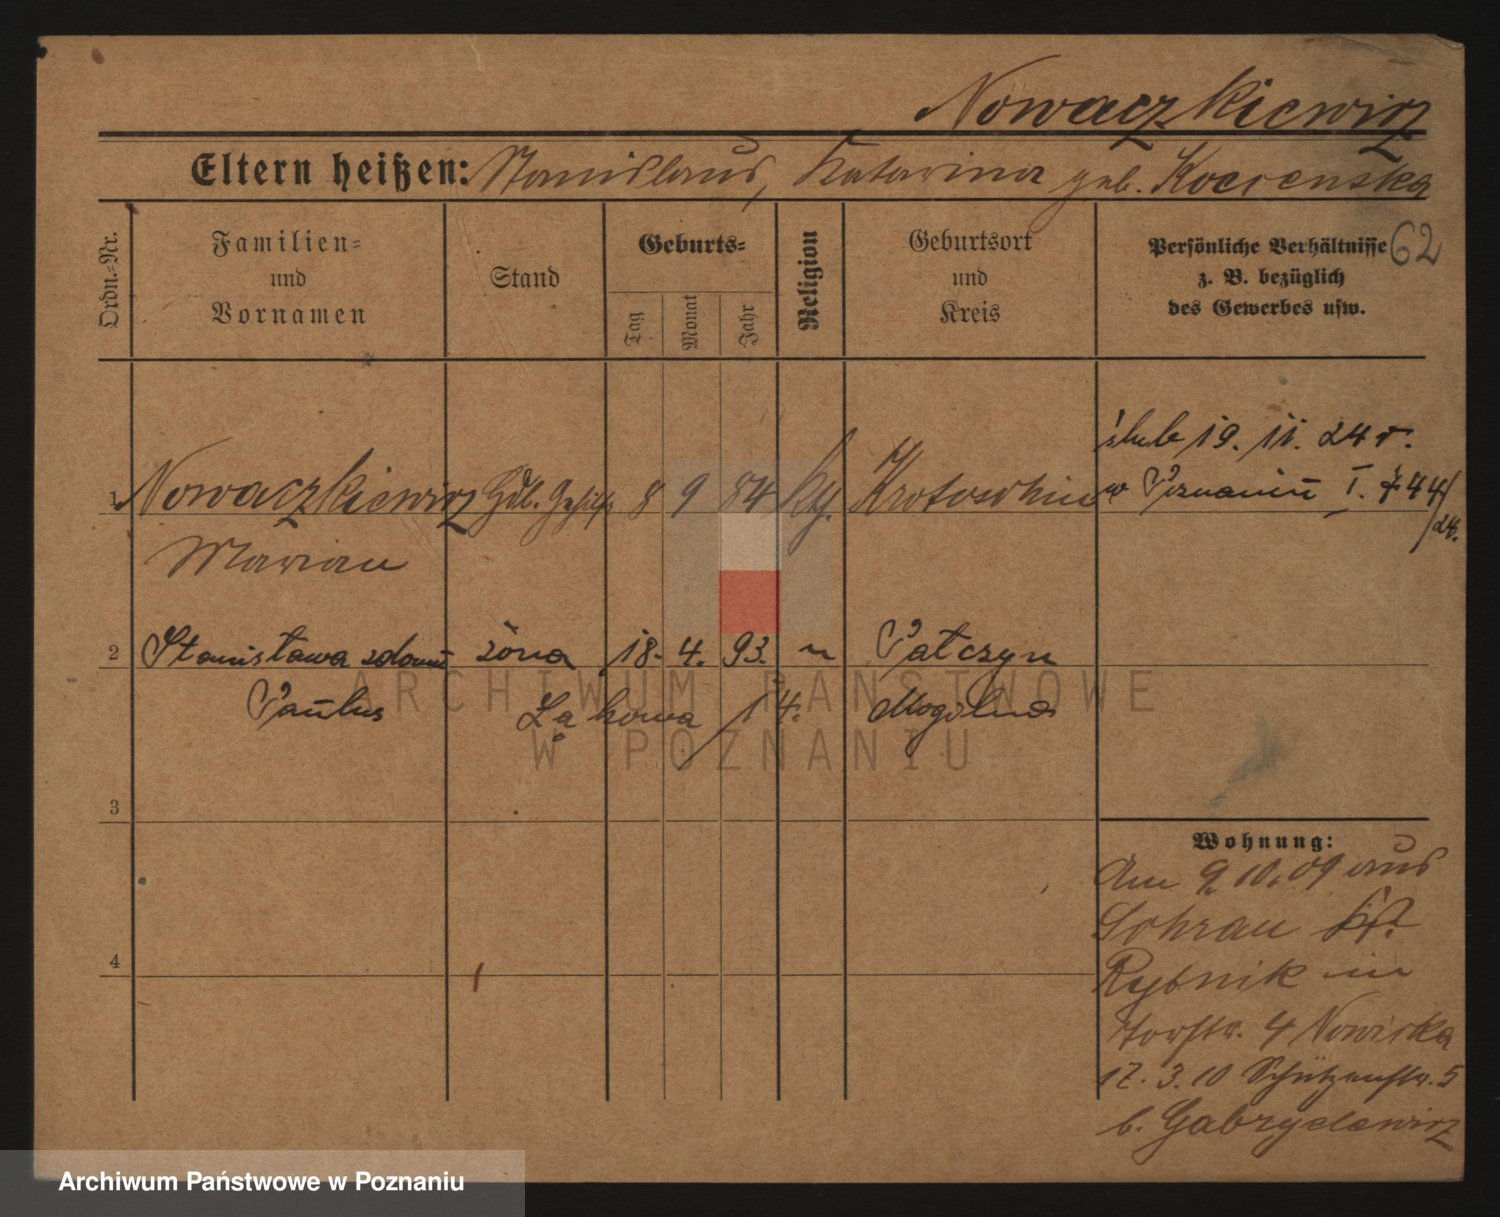 Nowaczkiewicz
Eltern heißen: Stanislaus, Katarina geb. Kocrenska
62
Ordn.-Nr.
Familien-
und
Vornamen
Stand
Geburts-
Tag
Monat
Jahr
Religion
Geburtsort
und
Kreis
Persönliche Verhältnisse
z. B. bezüglich
des Gewerbes usw.
ślub 19. 11. 24 r.
1 Nowaczkiewicz Hdl. Gehilfe 8 9 84 kg. Krotoschin w Poznaniu I. 744/24.
Marian
2 Stanisława zdomu żona 18. 4. 93. " Pałczyn
Paulus Łąkowa 14. Mogilno
3
4
Wohnung:
Am 9.10.09 aus
Sohrau Kr.
Rybnik in
Torstr. 4 Nowicka
17. 3. 10 Schützenstr. 5
b. Gabryelewicz
ARCHIWUM PAŃSTWOWE
W POZNANIU
Archiwum Państwowe w Poznaniu